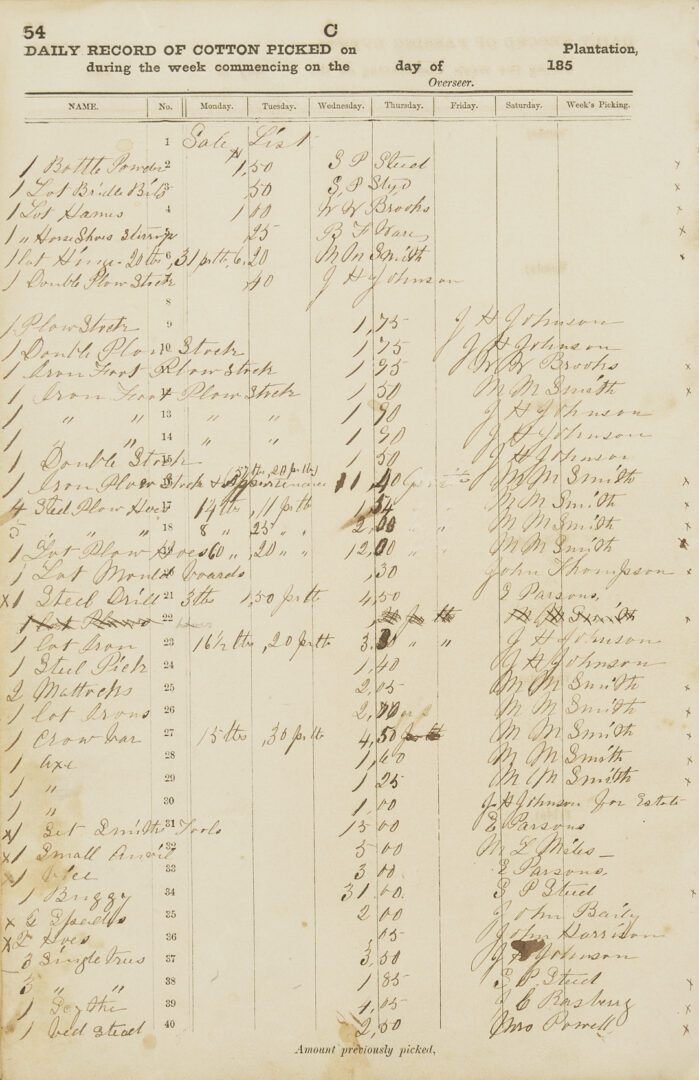 54 C
DAILY RECORD OF COTTON PICKED on Plantation,
during the week commencing on the day of 185
Overseer.
NAME. No. Monday. Tuesday. Wednesday. Thursday. Friday. Saturday. Week's Picking.
1 Sale List
1 Bottle Powder 2 1,50 S P Steed x
1 Lot Bridle Bits 3 ,50 S P x
1 Lot Hames 4 1 00 W W Brooks x
1 " Horse Shoes Stirrup ,25 B F Ware x
1 lot 20 lbs, 6 31 pr lb, 6.20 M M Smith
1 Double Plow Stock ,40 J H Johnson
8
1 Plow Stock 9 1,75 J H Johnson
1 Double Plow 10 Stock 1,75 J H Johnson
1 Iron Foot Plow Stock 1 95 W W Brooks x
1 Iron Foot Plow Stock 1 50 M M Smith x
1 " " 13 " " 1 90 J H Johnson
1 " " 14 " " 1 90 J H Johnson
1 Double Stock 15 1 50 J H Johnson
1 Iron Plow Stock 20 pr lb 11,40 M M Smith x
4 Steel Plow Hoes 17 14 lb ,11 pr lb 1,54 M M Smith x
5 " " " 18 8 " 25 " 2,00 M M Smith x
1 Lot Plow Hoes 60 " ,20 " " 12,00 M M Smith x
1 Lot Mould boards ,30 John Thompson
x1 Steel Drill 21 3 lbs 1,50 pr lb 4,50 E Parsons,
1 22 pr lb M M Smith
1 lot Iron 23 16½ lbs ,20 pr lb 3.3 " " J H Johnson
1 Steel Pick 24 1,40 J H Johnson
2 Mattocks 25 2,05 M M Smith x
1 lot Irons 26 2,70 M M Smith x
1 Crow bar 27 15 lbs ,30 pr lb 4,50 M M Smith x
1 Axe 28 1,60 M M Smith x
1 " 29 1 25 M M Smith x
1 " 30 1,00 J H Johnson for Estate
x1 Set Smiths 31 Tools 15 00 E Parsons
x1 Small Anvil 32 5 00 M L Miles
x1 Vice 33 3 00 E Parsons,
1 Buggy 34 31 00. S P Steed x
x 6 Spades 35 2 00 John Baily
x 2 Hoes 36 ,05 John Harrison
3 Single trees 37 3,50 J H Johnson
5 " " 38 1 85 S P Steed x
1 Scythe 39 4,05 J C Rasberry x
1 Bed Stead 40 2,50 Mrs Powell x
Amount previously picked,